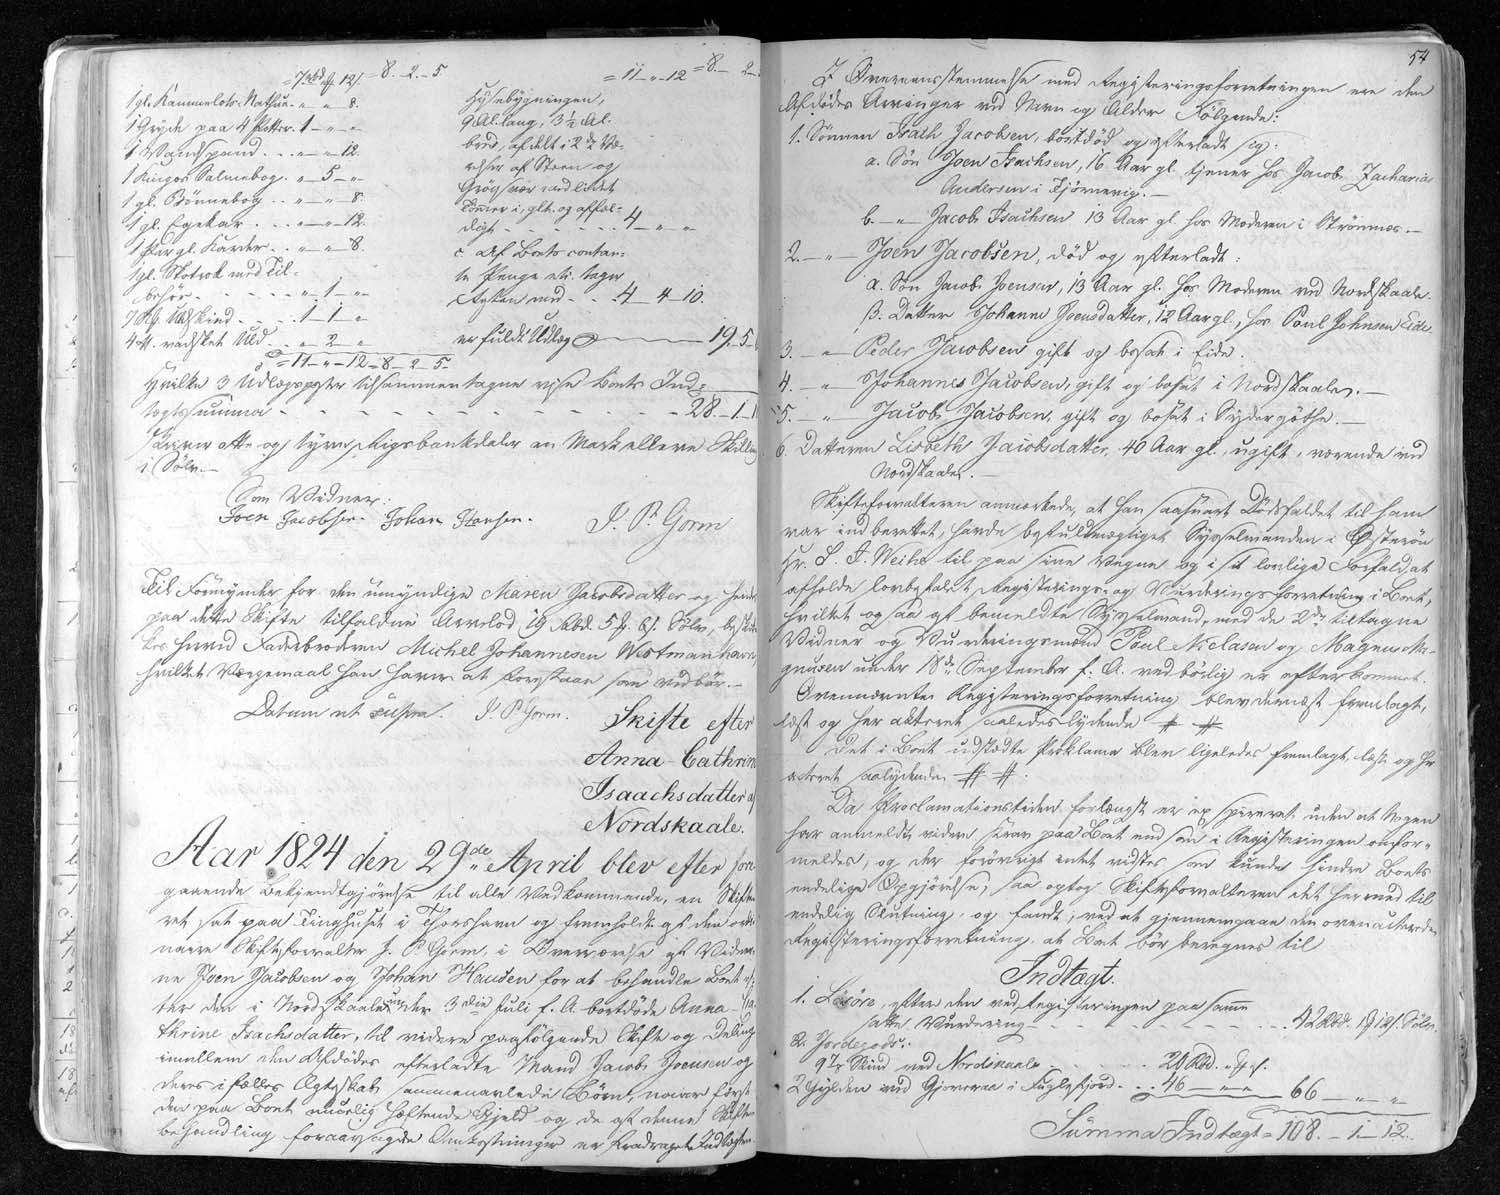 = 7 rbd 4 ß 12. = 8 - 2 - 5
1 gl. Kammelots Nathue - „ - „ - 8.
1 Gryde paa 4 Potter. 1 - „ - „
1 Vandspand . . „ - „ - 12.
1 Kingos Salmebog. „ - 5 - „
1 gl. Bönnebog . . „ - „ - 8
1 gl. Egekar . . . „ - „ - 12.
1 Par gl. Karder . . „ - „ - 8.
1 gl. med Til-
behör . . . . . „ - 1 - „
1 - 1 - „
4 ℔. vadsket Uld . . „ - 2 - „
= 11 - „ - 12 = 8 - 2 - 5.
= 11 - „ - 12 = 8. - 2 -
Hysebygningen,
9 Al. lang, 3 ½ Al.
bred, afdelt i 2de Væ-
relser af Steen og
Grøgsvær med lidet
Tömmer i, glt. og affæl-
digt . . . . . . . 4 - „ - „
c. Af Boets contan-
te Penge
ved . . . 4 - 4 - 10.
er fuldt Udlæg 19. - 5 -
Hvilke 3 Udlægsposter tilsammentagne vise Boets Ind-
tægtssumma - - - - - - - - 28. - 1 -
skriver otte og tyve Rigsbankdaler en Mark elleve Skilling
i Sölv. -
Som Vidner:
Joen Jacobsen. Johan Hansen. J. P. Gorm
Til Formynder for den umyndige Maren Jacobsdatter og hendes
paa dette Skifte tilfaldne Arvelod 19 Rbd. 5 ß. Sölv, beskik-
kes herved Faderbroderen Michel Johannesen Westmanhavn
hvilket Værgemaal han haver at forestaae som vedbör. -
Datum ut supra. J. P. Gorm.
Skifte efter
Anna Cathrine
Isaachsdatter af
Nordskaale.
Aar 1824 den 29de April blev efter fore
gaaende Bekiendtgjörelse til alle Vedkommende, en Skifte
ret sat paa Tinghuset i Thorshavn og fremholdt af den ordi-
naire Skifteforvalter J. P. Gorm, i Overværelse af Vidner-
ne Joen Jacobsen og Johan Hansen for at behandle Boet ef-
ter den i Nordskaale under 3die Juli f. A. bortdöde Anna Ca-
thrine Isachsdatter, til videre paafölgende Skifte og Deling
imellem den Afdödes efterladte Mand Jacob Joensen og
deres i fælles Ægteskab sammenavlede Börn, naar först
den paa Boet Gjeld og de af denne Skifte
behandling foraarsagede Omkostninger er fradraget Indtægten.
54
I Overeensstemmelse med Registeringsforretningen ere den
Afdödes Arvinger ved Navn og Alder Fölgende:
1. Sönnen Isach Jacobsen, bortdöd og efterladt sig:
a. Sön Joen Isachsen, 16 Aar gl. tjener hos Jacob Zacharias
Andersen i Tjörnevig. -
b. - „ - Jacob Isachsen 13 Aar gl. hos Moderen i Strömnæs. -
2. - „ - Joen Jacobsen, död og efterladt:
a. Sön Jacob Joensen, 13 Aar gl. hos Moderen ved Nordskaale.
b. Datter Johanne Joensdatter, 12 Aar gl., hos Poul Johnsen Eide.
3. - „ - Peder Jacobsen gift og bosat i Eide.
4. - „ - Johannes Jacobsen, gift og bosat i Nordskaale. -
5. - „ - Jacob Jacobsen, gift og bosat i Sydergöthe. -
6. Datteren Lisbeth Jacobsdatter, 40 Aar gl., ugift, værende ved
Nordskaale. -
Skifteforvalteren anmærkede, at han saasnart Dödsfaldet til ham
var indberettet, havde befuldmægtiget Sysselmanden i Österön
Hr. S. J. Weihe til paa sine Vegne og i sit lovlige Forfald at
afholde lovbefalet Registerings- og Vurderingsforretning i Boet,
hvilket ogsaa af bemeldte Sysselmand, med de 2de tiltagne
Vidner og Vurderingsmænd Poul Niclasen og Magnus Ma-
gnusen under 18de September f. A. vedbörlig er efterkommet.
Ovennævnte Registeringsforretning blev dernæst fremlagt,
læst og her acteret saaledes lydende # #
Det i Boet udstædte Proklama blev ligeledes fremlagt, læst og her
acteret saalydende # #.
Da Proclamationstiden forlængst er expireret uden at Nogen
har anmeldt videre Krav paa Boet end som i Registeringen omfor-
meldes, og der forövrigt intet vidstes som kunde hindre Boets
endelige Opgjörelse, saa optog Skifteforvalteren det hermed til
endelig Slutning, og fandt, ved at gjennemgaae den ovenacterede
Registeringsforretning, at Boet bör beregnes til
Indtægt.
1. Lösöre, efter den ved Registeringen paa samme
satte Vurdering - - - - - - 42 Rbd. 1 ß 12 s. Sölv.
2. Jordegods:
9½ Skind ved Nordskaale . . . . . . 20 Rbd. „ ß „ s.
2 Gylden ved Gjoveraa i Fuglefjord . . . 46 - „ - „ 66 - „ - „
Summa Indtægt = 108. - 1 - 12.